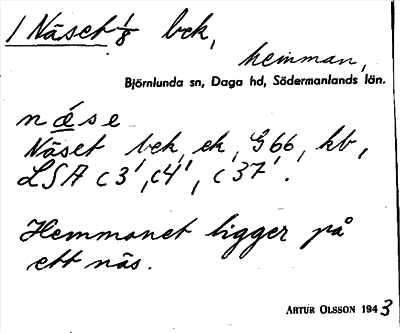 1 Näset 1/8 bck,
hemman,
Björnlunda sn, Daga hd, Södermanlands län.
næ̀se
Näset, bck, ek, G66, kb,
LSA C3', C4', C37'.
Hemmanet ligger på
ett näs.
ARTUR OLSSON 1943